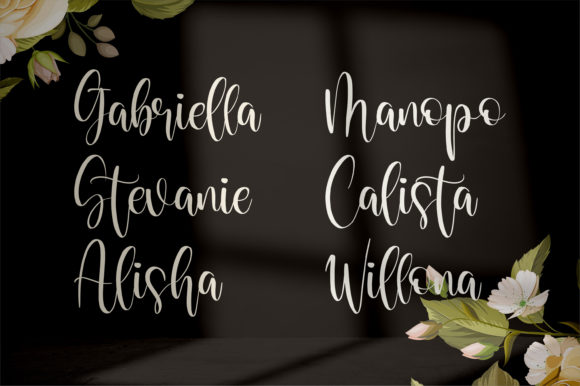 Gabriella
Stevanie
Alisha
Manopo
Calista
Willona